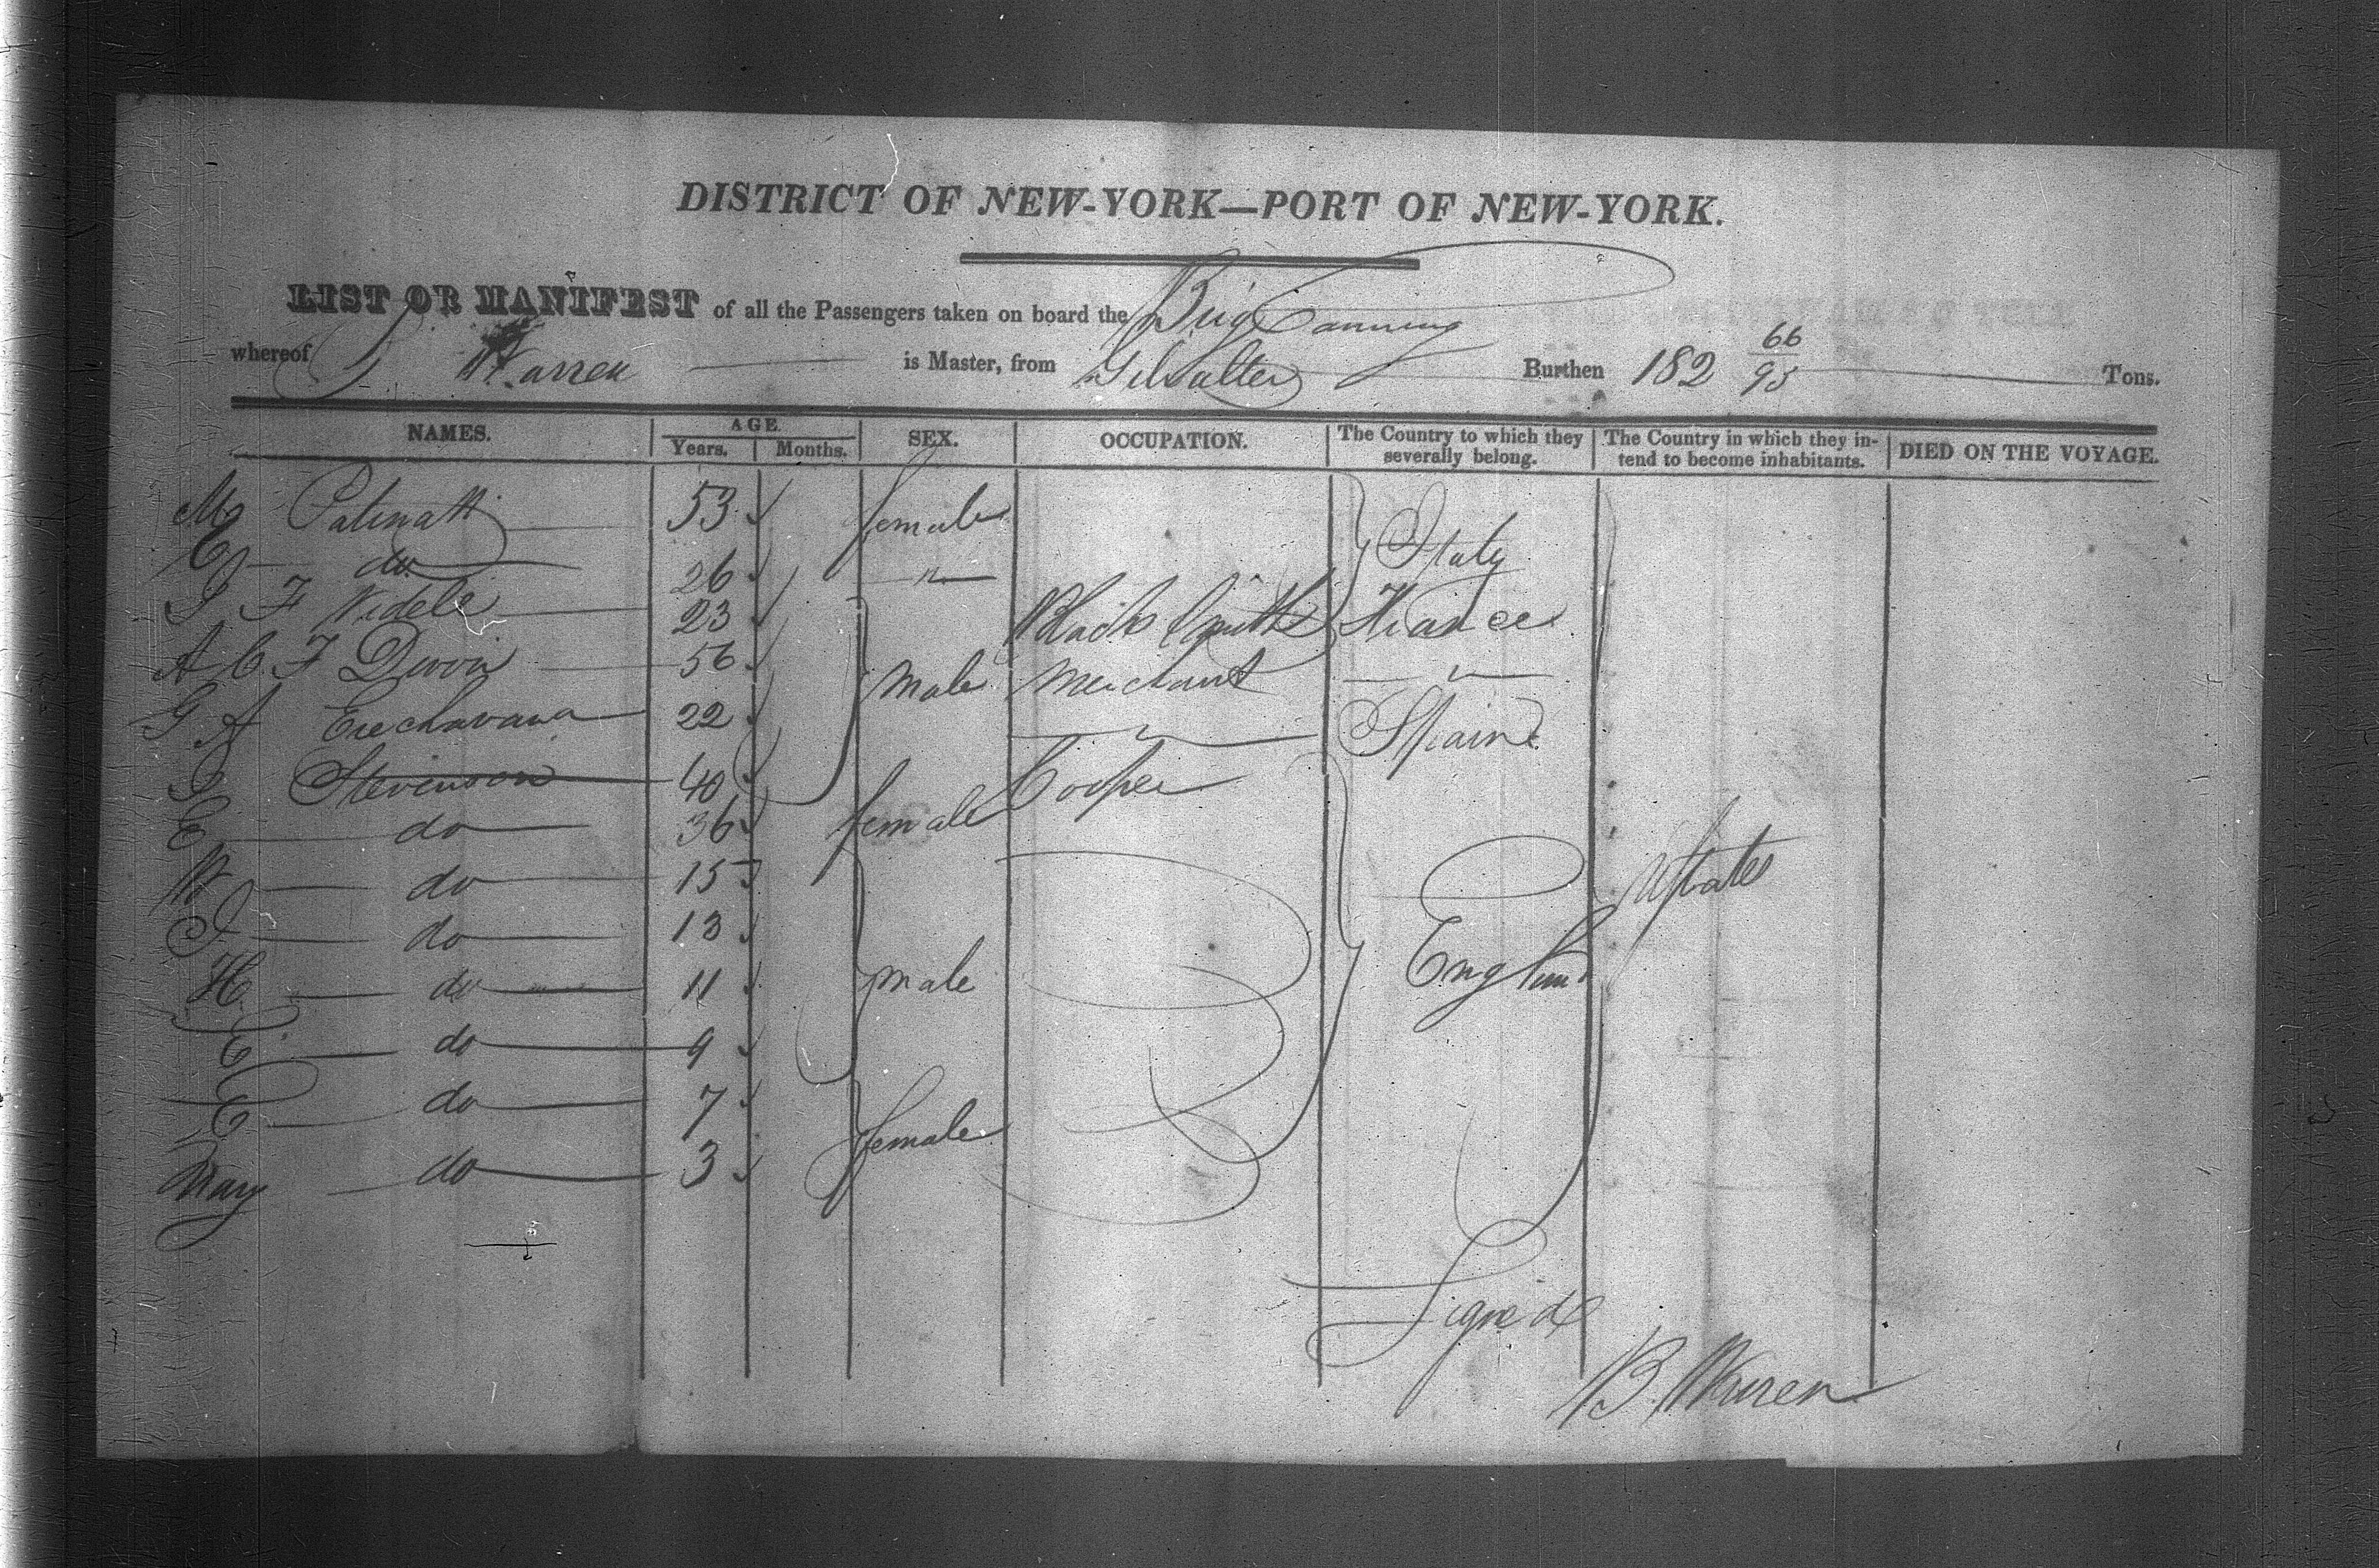 DISTRICT OF NEW-YORK—PORT OF NEW-YORK.
LIST OR MANIFEST of all the Passengers taken on board the Brig Canning
whereof Warren is Master, from Gibralter Burthen 182 66/95 Tons.
NAMES. AGE. Years. Months. SEX. OCCUPATION. The Country to which they severally belong. The Country in which they intend to become inhabitants. DIED ON THE VOYAGE.
53 female
do 26 " Italy
J F Videle 23 Black Smith France
A C F 56 male merchant "
G A 22 " Spain
J Stevenson 40 Cooper
E do 36 female
W do 15
J do 13
H do 11 male England U States
E do 9
E do 7
Mary do 3 female
Signed
B. Warren